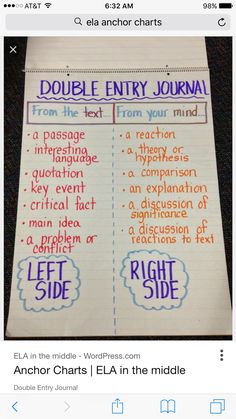 AT&T
6:32 AM
98%
ela anchor charts
DOUBLE ENTRY JOURNAL
From the text...
From your mind...
• a passage
• interesting
language
• quotation
• key event
• critical fact
• main idea
• a problem or
conflict
LEFT
SIDE
• a reaction
• a theory or
hypothesis
• a comparison
• an explanation
• a discussion of
significance
• a discussion of
reactions to text
RIGHT
SIDE
ELA in the middle - WordPress.com
Anchor Charts | ELA in the middle
Double Entry Journal